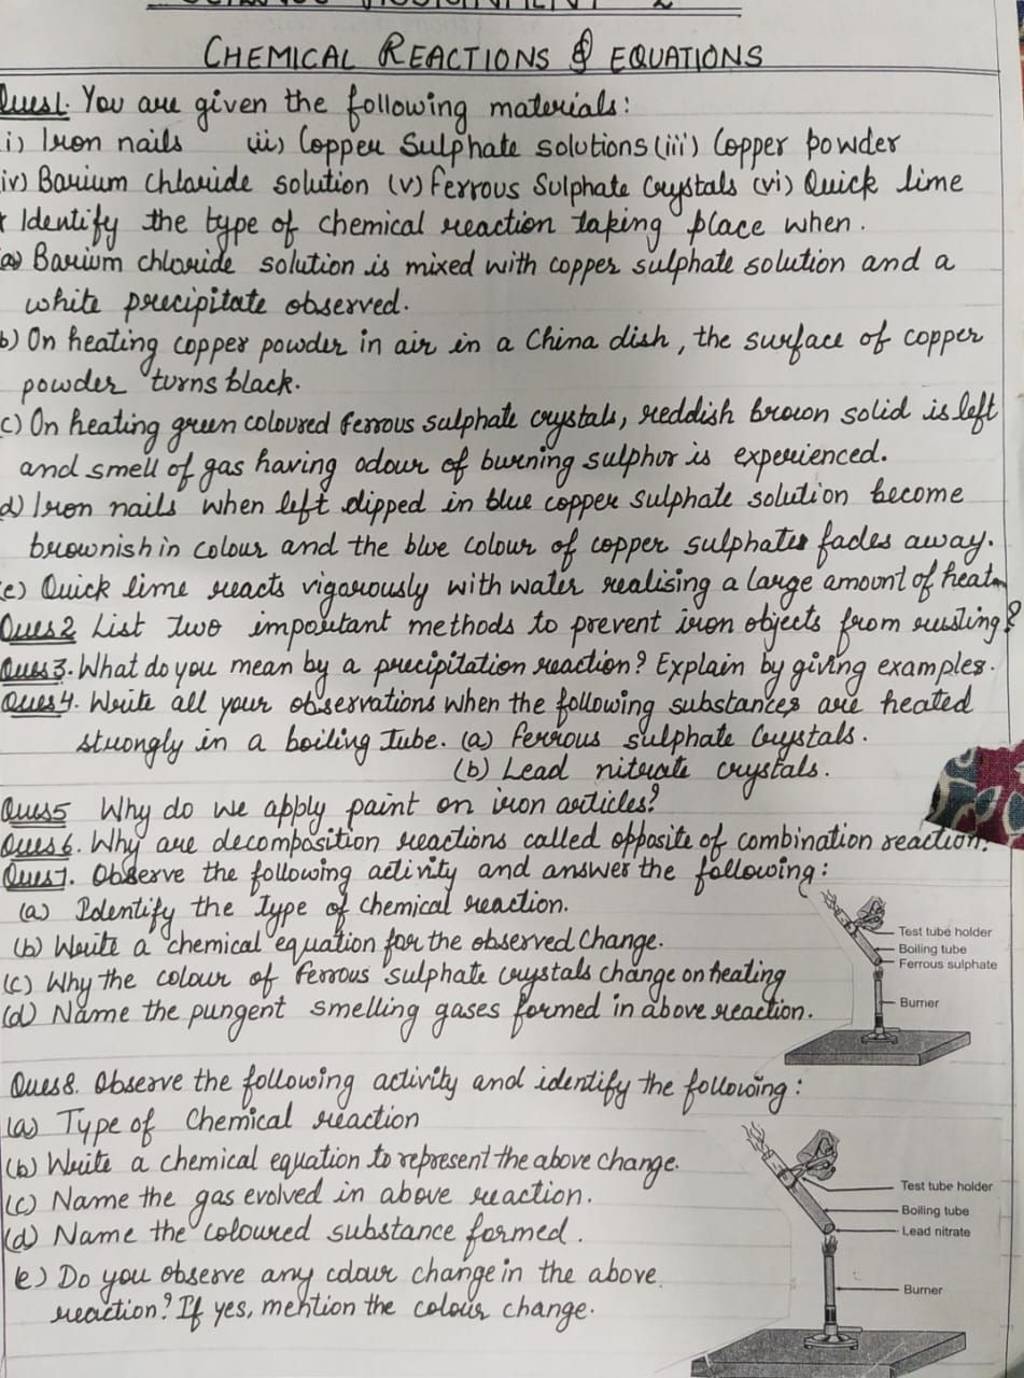 CHEMICAL REACTIONS & EQUATIONS
Ques1. You are given the following materials:
i) Iron nails iii) Copper Sulphate solutions (iii) Copper powder
iv) Barium chloride solution (v) Ferrous Sulphate Crystals (vi) Quick lime
* Identify the type of chemical reaction taking place when.
(a) Barium chloride solution is mixed with copper sulphate solution and a
white precipitate observed.
b) On heating copper powder in air in a China dish, the surface of copper
powder turns black.
c) On heating green coloured ferrous sulphate crystals, reddish brown solid is left
and smell of gas having odour of burning sulphur is experienced.
d) Iron nails when left dipped in blue copper sulphate solution become
brownish in colour and the blue colour of copper sulphates fades away.
(e) Quick lime reacts vigorously with water realising a large amount of heat
Ques2 List two important methods to prevent iron objects from rusting?
Ques3. What do you mean by a precipitation reaction? Explain by giving examples.
Ques4. Write all your observations when the following substances are heated
strongly in a boiling tube. (a) ferrous sulphate Crystals.
(b) Lead nitrate crystals.
Ques5 Why do we apply paint on iron articles?
Ques6. Why are decomposition reactions called opposite of combination reaction?
Ques7. Observe the following activity and answer the following:
(a) Identify the type of chemical reaction.
(b) Write a chemical equation for the observed Change.
(c) Why the colour of ferrous sulphate crystals change on heating
(d) Name the pungent smelling gases formed in above reaction.
Test tube holder
Boiling tube
Ferrous sulphate
Burner
Ques8. Observe the following activity and identify the following:
(a) Type of Chemical reaction
(b) Write a chemical equation to represent the above change.
(c) Name the gas evolved in above reaction.
(d) Name the coloured substance formed.
(e) Do you observe any colour change in the above
reaction? If yes, mention the colour change.
Test tube holder
Boiling tube
Lead nitrate
Burner